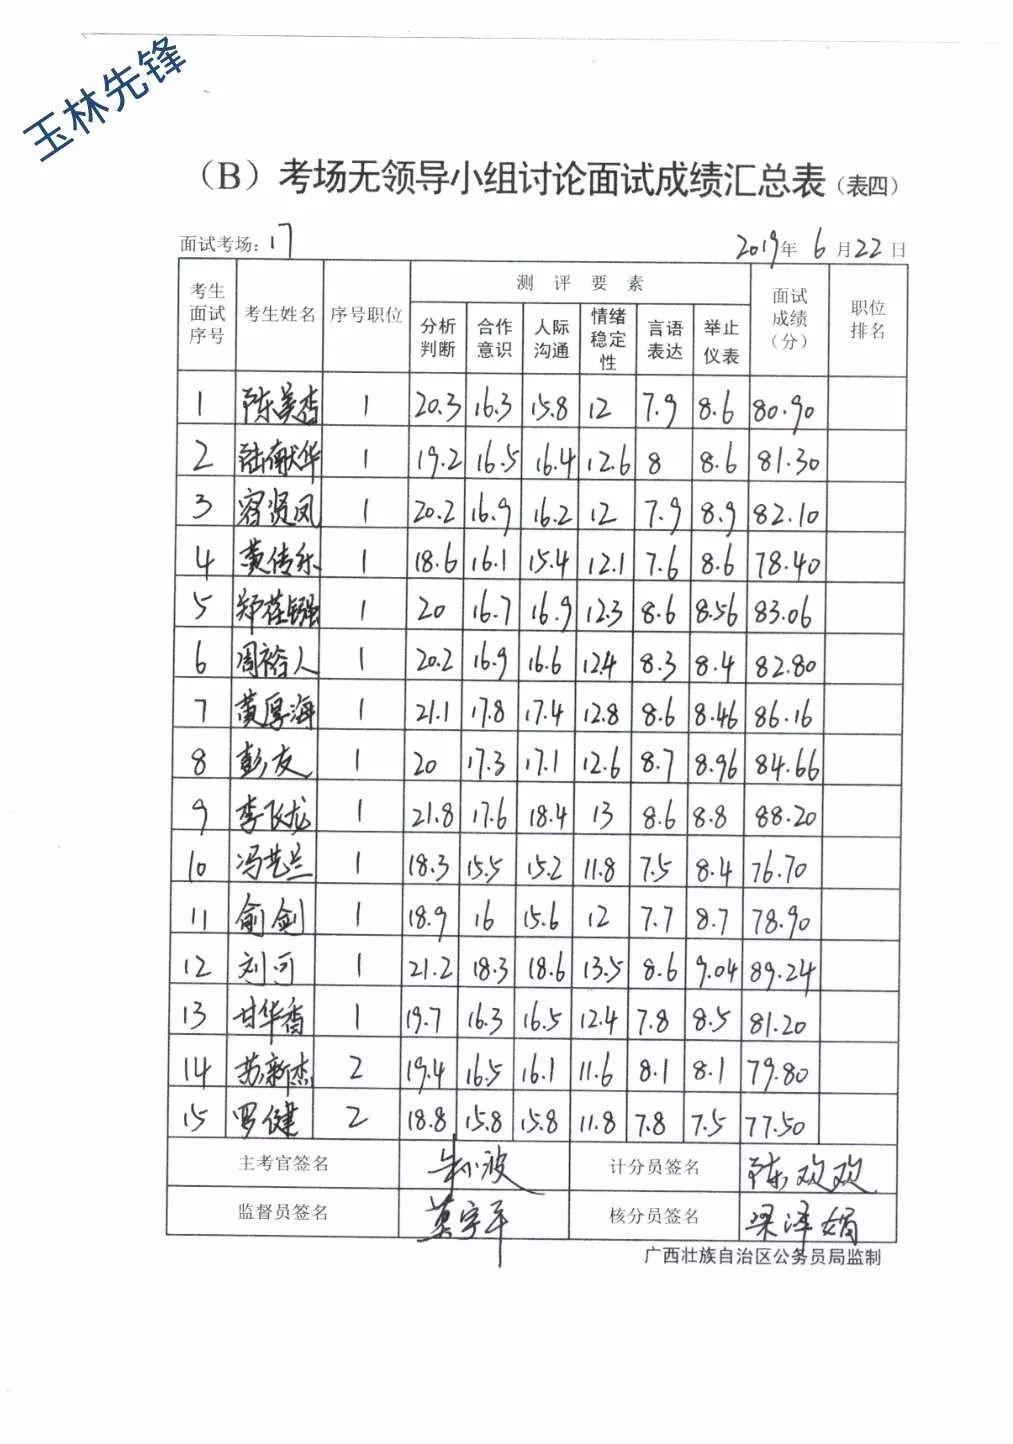 玉林先锋
（B）考场无领导小组讨论面试成绩汇总表（表四）
面试考场：17 2019年 6月22日
考生面试序号 考生姓名 序号职位 测评要素 面试成绩（分） 职位排名
分析判断 合作意识 人际沟通 情绪稳定性 言语表达 举止仪表
1 陈美杏 1 20.3 16.3 15.8 12 7.9 8.6 80.90
2 陆献华 1 19.2 16.5 16.4 12.6 8 8.6 81.30
3 容贤凤 1 20.2 16.9 16.2 12 7.9 8.9 82.10
4 黄传乐 1 18.6 16.1 15.4 12.1 7.6 8.6 78.40
5 郑 1 20 16.7 16.9 12.3 8.6 8.56 83.06
6 周裕人 1 20.2 16.9 16.6 12.4 8.3 8.4 82.80
7 黄厚海 1 21.1 17.8 17.4 12.8 8.6 8.46 86.16
8 彭友 1 20 17.3 17.1 12.6 8.7 8.96 84.66
9 李飞龙 1 21.8 17.6 18.4 13 8.6 8.8 88.20
10 冯艺兰 1 18.3 15.5 15.2 11.8 7.5 8.4 76.70
11 俞剑 1 18.9 16 15.6 12 7.7 8.7 78.90
12 刘可 1 21.2 18.3 18.6 13.5 8.6 9.04 89.24
13 甘华香 1 19.7 16.3 16.5 12.4 7.8 8.5 81.20
14 苏新杰 2 19.4 16.5 16.1 11.6 8.1 8.1 79.80
15 罗健 2 18.8 15.8 15.8 11.8 7.8 7.5 77.50
主考官签名 朱小波 计分员签名 陈欢欢
监督员签名 莫宇平 核分员签名 梁泽娟
广西壮族自治区公务员局监制